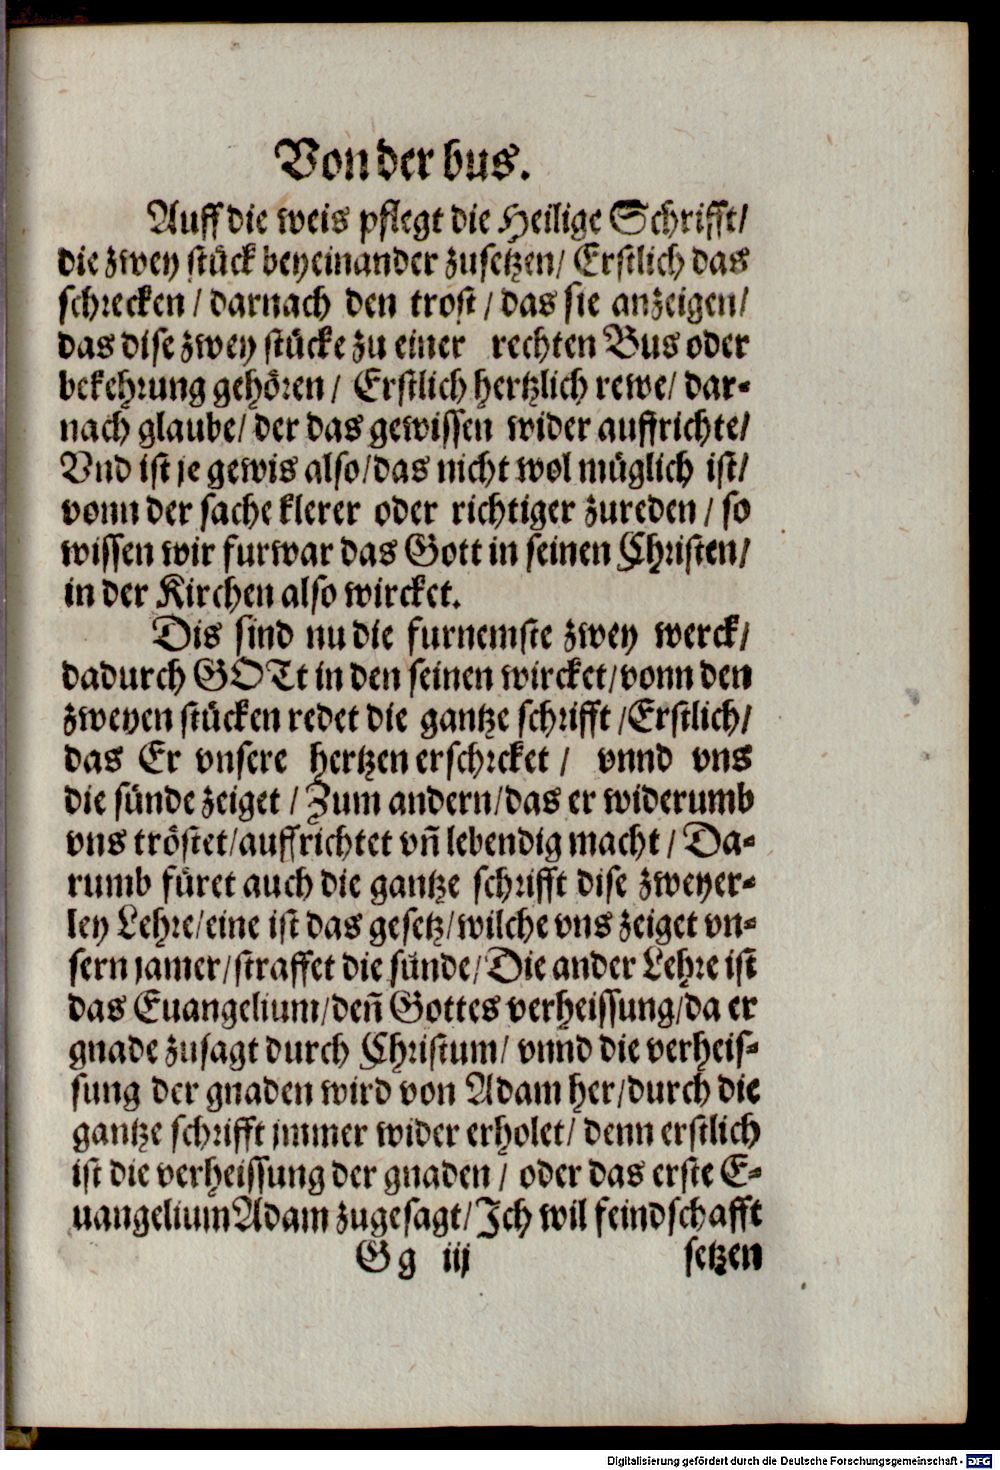 Von der bus.
Auff die weis pflegt die Heilige Schrifft/
die zwey stück beyeinander zusetzen/ Erstlich das
schrecken / darnach den trost / das sie anzeigen/
das dise zwey stücke zu einer rechten Bus oder
bekehrung gehören / Erstlich hertzlich rewe/ dar-
nach glaube/ der das gewissen wider auffrichte/
Vnd ist je gewis also/das nicht wol müglich ist/
vonn der sache klerer oder richtiger zureden / so
wissen wir furwar das Gott in seinen Christen/
in der Kirchen also wircket.
Dis sind nu die furnemste zwey werck/
dadurch GOTt in den seinen wircket/vonn den
zweyen stücken redet die gantze schrifft /Erstlich/
das Er vnsere hertzen erschrcket / vnnd vns
die sünde zeiget / Zum andern/das er widerumb
vns tröstet/auffrichtet vñ lebendig macht / Da-
rumb füret auch die gantze schrifft dise zweyer-
ley Lehre/eine ist das gesetz/wilche vns zeiget vn-
sern jamer/straffet die sünde/Die ander Lehre ist
das Euangelium/deñ Gottes verheissung/da er
gnade zusagt durch Christum/ vnnd die verheis-
sung der gnaden wird von Adam her/durch die
gantze schrifft jmmer wider erholet/ denn erstlich
ist die verheissung der gnaden / oder das erste E-
uangelium Adam zugesagt/Ich wil feindschafft
Gg iij setzen
Digitalisierung gefördert durch die Deutsche Forschungsgemeinschaft - DFG